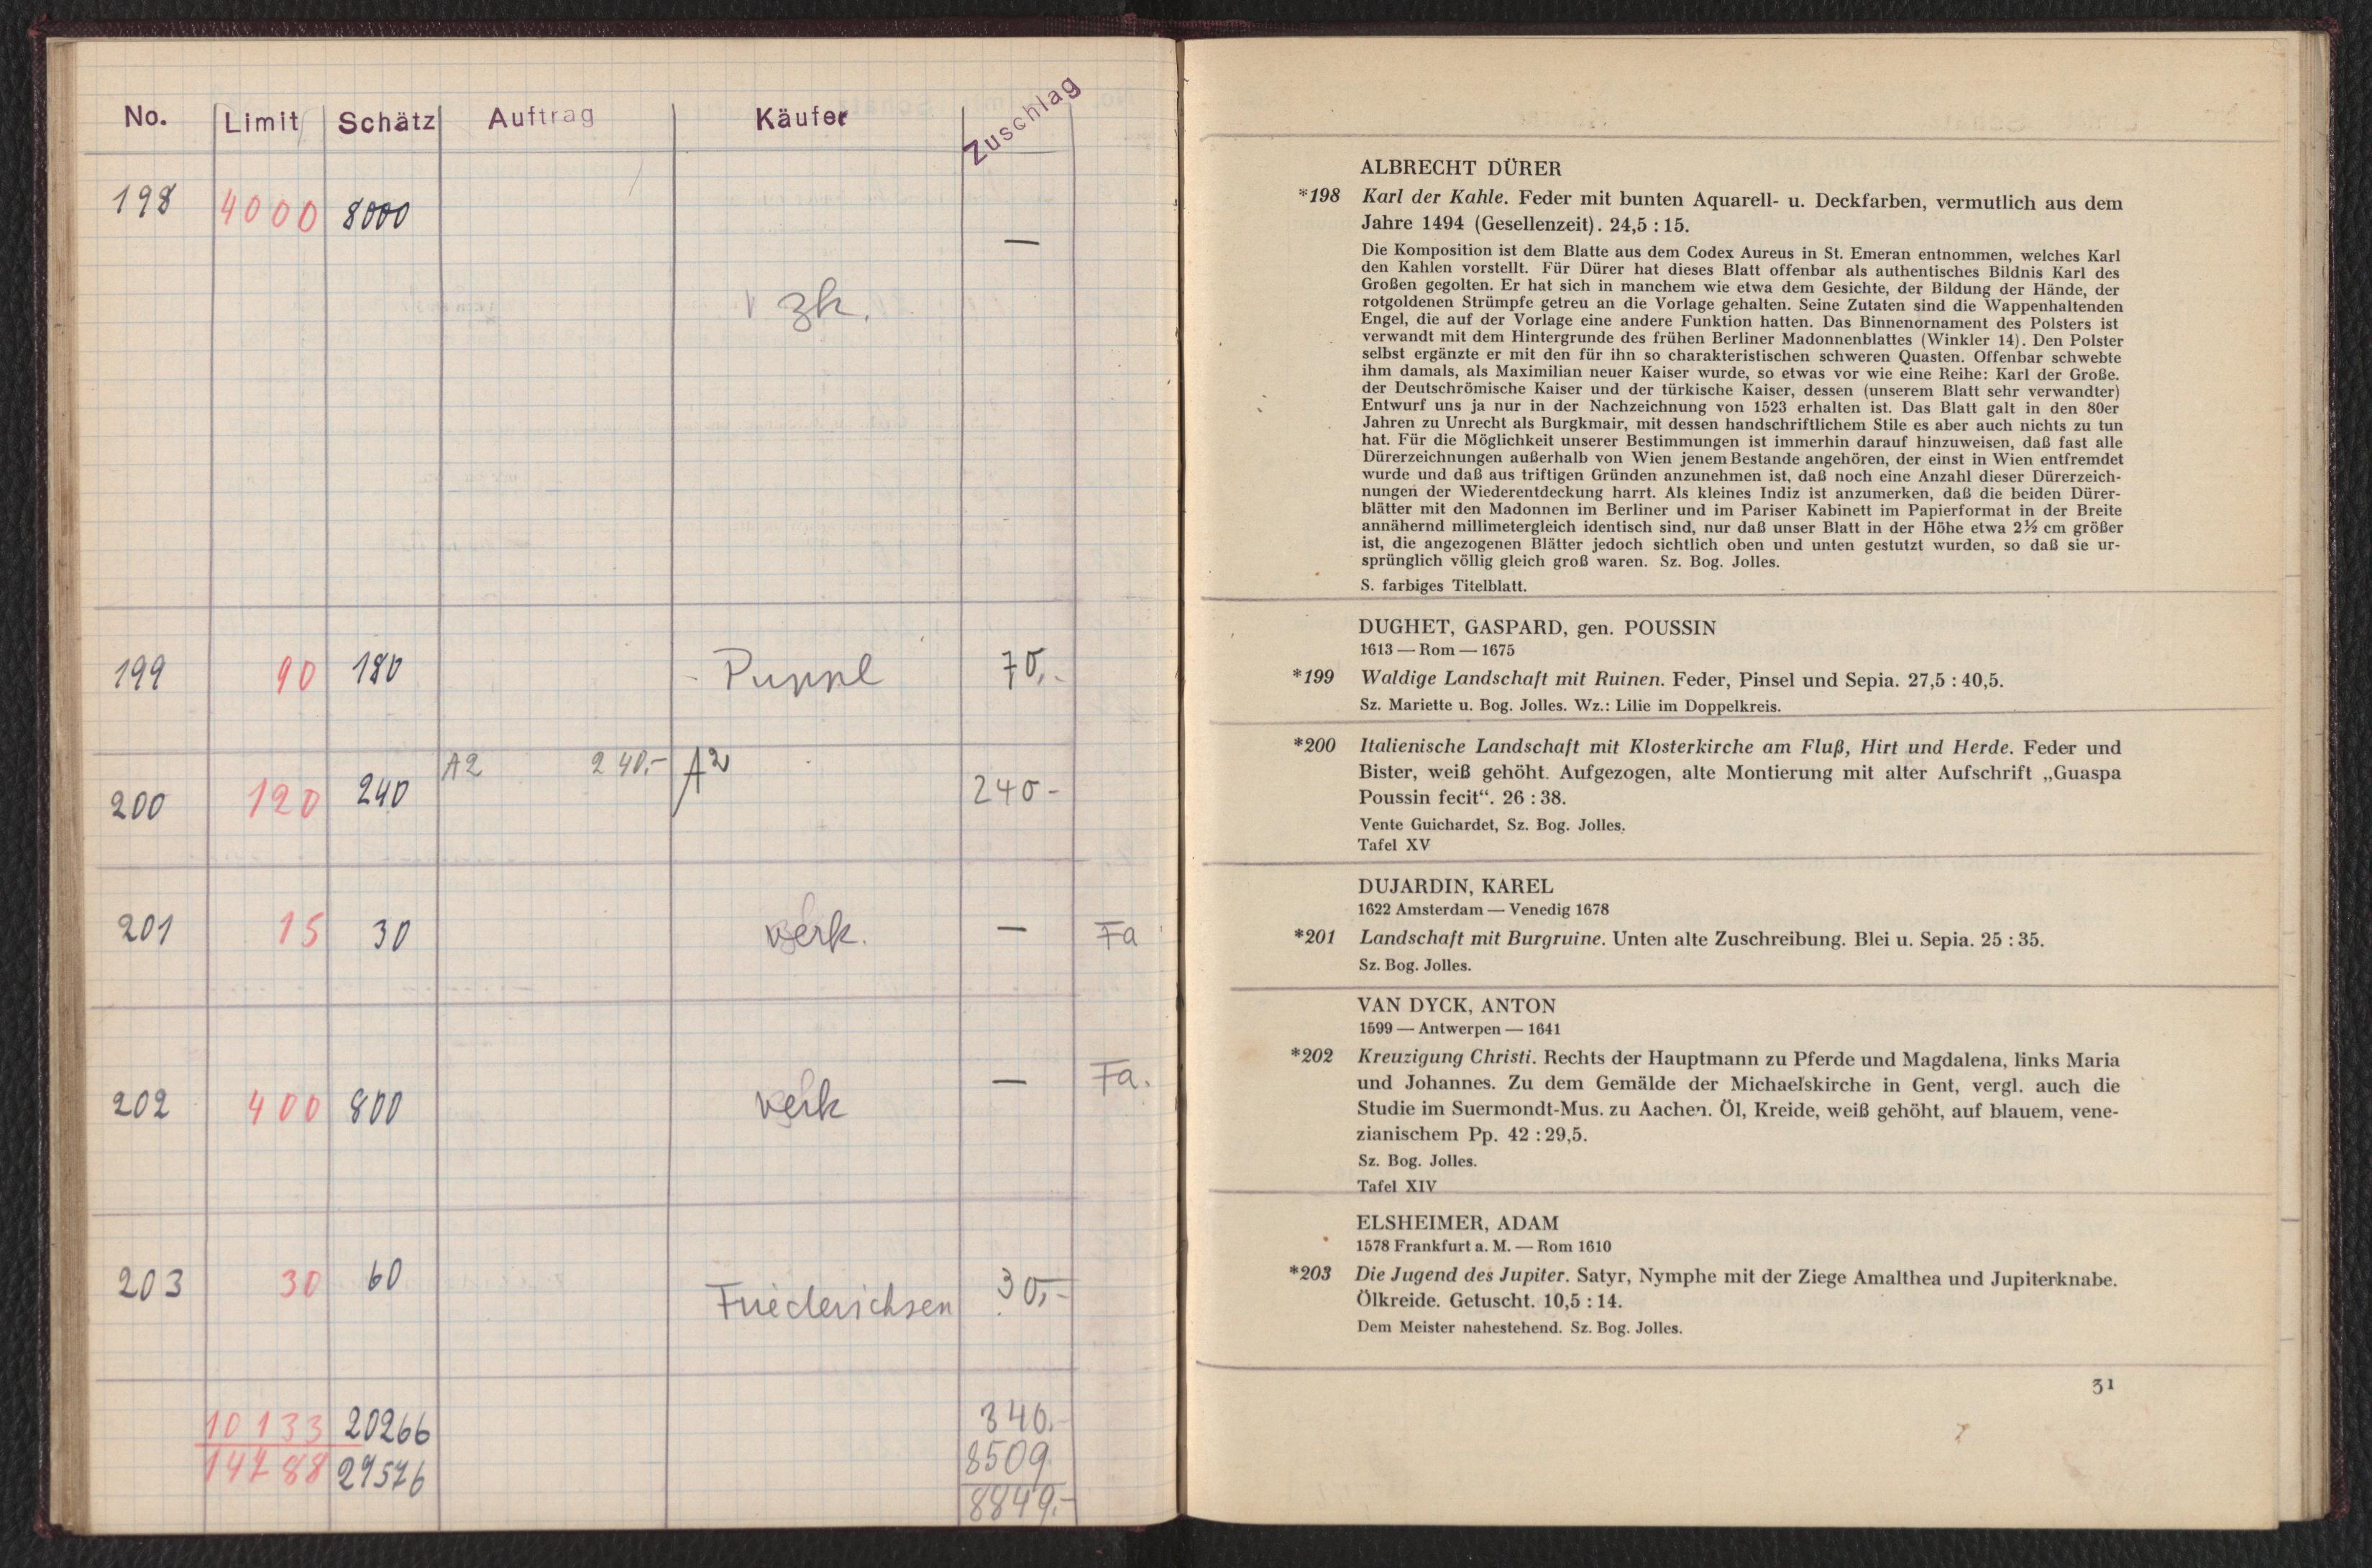 No. Limit Schätz Auftrag Käufer Zuschlag
198 4000 8000 —
zk.
199 90 180 Puppel 70,-
200 120 240 A2 240,- A2 240-
201 15 30 verk. — Fa
202 400 800 verk — Fa.
203 30 60 Friederichsen 30,-
10133 20266 340.-
14788 29576 8509
8849.-
ALBRECHT DÜRER
*198 Karl der Kahle. Feder mit bunten Aquarell- u. Deckfarben, vermutlich aus dem
Jahre 1494 (Gesellenzeit). 24,5 : 15.
Die Komposition ist dem Blatte aus dem Codex Aureus in St. Emeran entnommen, welches Karl
den Kahlen vorstellt. Für Dürer hat dieses Blatt offenbar als authentisches Bildnis Karl des
Großen gegolten. Er hat sich in manchem wie etwa dem Gesichte, der Bildung der Hände, der
rotgoldenen Strümpfe getreu an die Vorlage gehalten. Seine Zutaten sind die Wappenhaltenden
Engel, die auf der Vorlage eine andere Funktion hatten. Das Binnenornament des Polsters ist
verwandt mit dem Hintergrunde des frühen Berliner Madonnenblattes (Winkler 14). Den Polster
selbst ergänzte er mit den für ihn so charakteristischen schweren Quasten. Offenbar schwebte
ihm damals, als Maximilian neuer Kaiser wurde, so etwas vor wie eine Reihe: Karl der Große.
der Deutschrömische Kaiser und der türkische Kaiser, dessen (unserem Blatt sehr verwandter)
Entwurf uns ja nur in der Nachzeichnung von 1523 erhalten ist. Das Blatt galt in den 80er
Jahren zu Unrecht als Burgkmair, mit dessen handschriftlichem Stile es aber auch nichts zu tun
hat. Für die Möglichkeit unserer Bestimmungen ist immerhin darauf hinzuweisen, daß fast alle
Dürerzeichnungen außerhalb von Wien jenem Bestande angehören, der einst in Wien entfremdet
wurde und daß aus triftigen Gründen anzunehmen ist, daß noch eine Anzahl dieser Dürerzeich-
nungen der Wiederentdeckung harrt. Als kleines Indiz ist anzumerken, daß die beiden Dürer-
blätter mit den Madonnen im Berliner und im Pariser Kabinett im Papierformat in der Breite
annähernd millimetergleich identisch sind, nur daß unser Blatt in der Höhe etwa 2½ cm größer
ist, die angezogenen Blätter jedoch sichtlich oben und unten gestutzt wurden, so daß sie ur-
sprünglich völlig gleich groß waren. Sz. Bog. Jolles.
S. farbiges Titelblatt.
DUGHET, GASPARD, gen. POUSSIN
1613 — Rom — 1675
*199 Waldige Landschaft mit Ruinen. Feder, Pinsel und Sepia. 27,5 : 40,5.
Sz. Mariette u. Bog. Jolles. Wz.: Lilie im Doppelkreis.
*200 Italienische Landschaft mit Klosterkirche am Fluß, Hirt und Herde. Feder und
Bister, weiß gehöht. Aufgezogen, alte Montierung mit alter Aufschrift „Guaspa
Poussin fecit“. 26 : 38.
Vente Guichardet, Sz. Bog. Jolles.
Tafel XV
DUJARDIN, KAREL
1622 Amsterdam — Venedig 1678
*201 Landschaft mit Burgruine. Unten alte Zuschreibung. Blei u. Sepia. 25 : 35.
Sz. Bog. Jolles.
VAN DYCK, ANTON
1599 — Antwerpen — 1641
*202 Kreuzigung Christi. Rechts der Hauptmann zu Pferde und Magdalena, links Maria
und Johannes. Zu dem Gemälde der Michaelskirche in Gent, vergl. auch die
Studie im Suermondt-Mus. zu Aachen. Öl, Kreide, weiß gehöht, auf blauem, vene-
zianischem Pp. 42 : 29,5.
Sz. Bog. Jolles.
Tafel XIV
ELSHEIMER, ADAM
1578 Frankfurt a. M. — Rom 1610
*203 Die Jugend des Jupiter. Satyr, Nymphe mit der Ziege Amalthea und Jupiterknabe.
Ölkreide. Getuscht. 10,5 : 14.
Dem Meister nahestehend. Sz. Bog. Jolles.
31